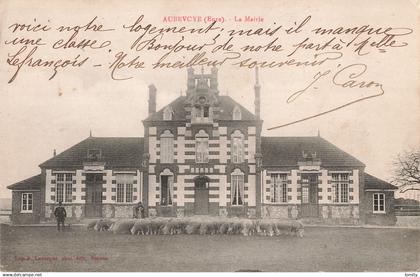 AUBEVOYE (Eure) - La Mairie
voici notre logement, mais il manque
une classe. Bonjour de notre part à Melle
Lefrançois - Notre meilleur souvenir.
J. Caron